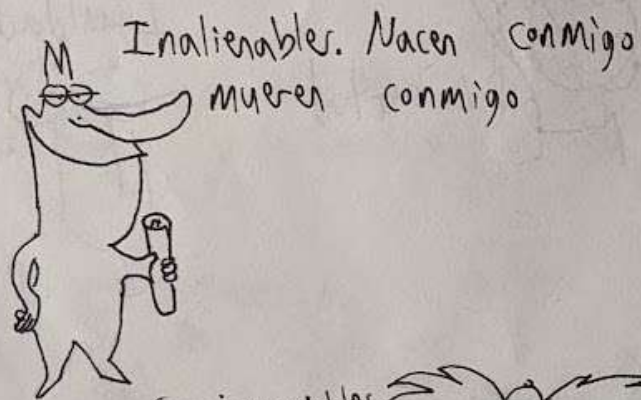 Inalienables. Nacen conmigo
mueren conmigo